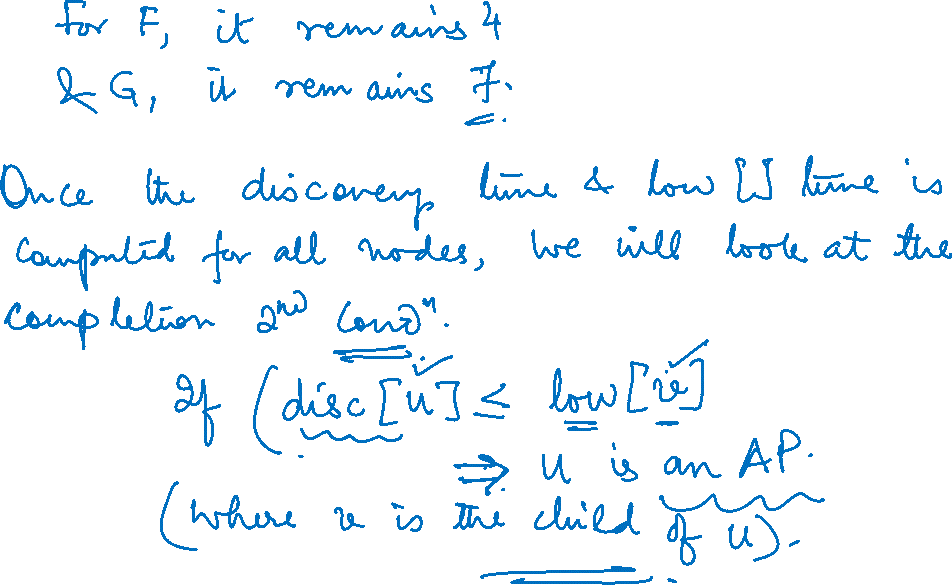 For F, it remains 4
& G, it remains 7.
Once the discovery time & low [] time is
computed for all nodes, we will look at the
completion 2nd condn.
If (disc [u] ≤ low [v]
⇒ u is an AP.
(where v is the child of u).